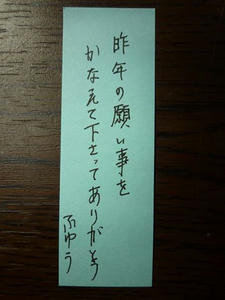 昨年の願い事を
かなえて下さってありがとう
ふゆう